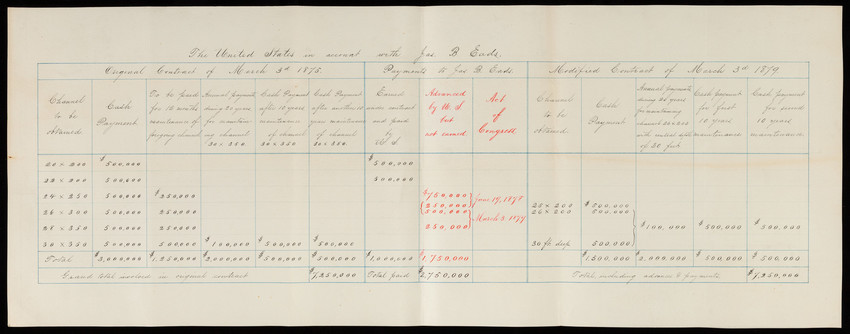 The United States in account with Jas B Eads.
Original Contract of March 3d 1875. Payments to Jas B. Eads. Modified Contract of March 3d 1879
Channel to be Obtained
Cash Payment
To be paid for 12 months maintenance of foregoing channel
Annual payments during 20 years for maintaining channel 30 x 350.
Cash Payment after 10 years maintenance of channel 30 x 350
Cash Payment after maintenance of channel 30 x 350.
Earned under contract and paid by U.S
Advanced by U.S but not earned
Act of Congress
Channel to be Obtained.
Cash Payment
Annual payments during 20 years for maintaining channel
of 30 feet
Cash payment for first 10 years maintenance
Cash payment for second 10 years maintenance.
20 x 200 $500,000 $500,000
22 x 200 500,000 500,000
24 x 250 500,000 $250,000 $750,000 June 19, 1878
250,000 25 x 200 $500,000
26 x 300 500,000 250,000 500,000 March 3, 1879 26 x 200 500,000
28 x 350 500,000 250,000 250,000 $100,000 $500,000 $500,000
30 x 350 500,000 500,000 $100,000 $500,000 $500,000 30 ft. deep 500,000
Total $3,000,000 $1,250,000 $2,000,000 $500,000 $500,000 $1,000,000 $1,750,000 $1,500,000 $2,000,000 $500,000 $500,000
Grand total involved in original contract $7,250,000 Total paid $2,750,000 Total, including advance & payments $7,250,000